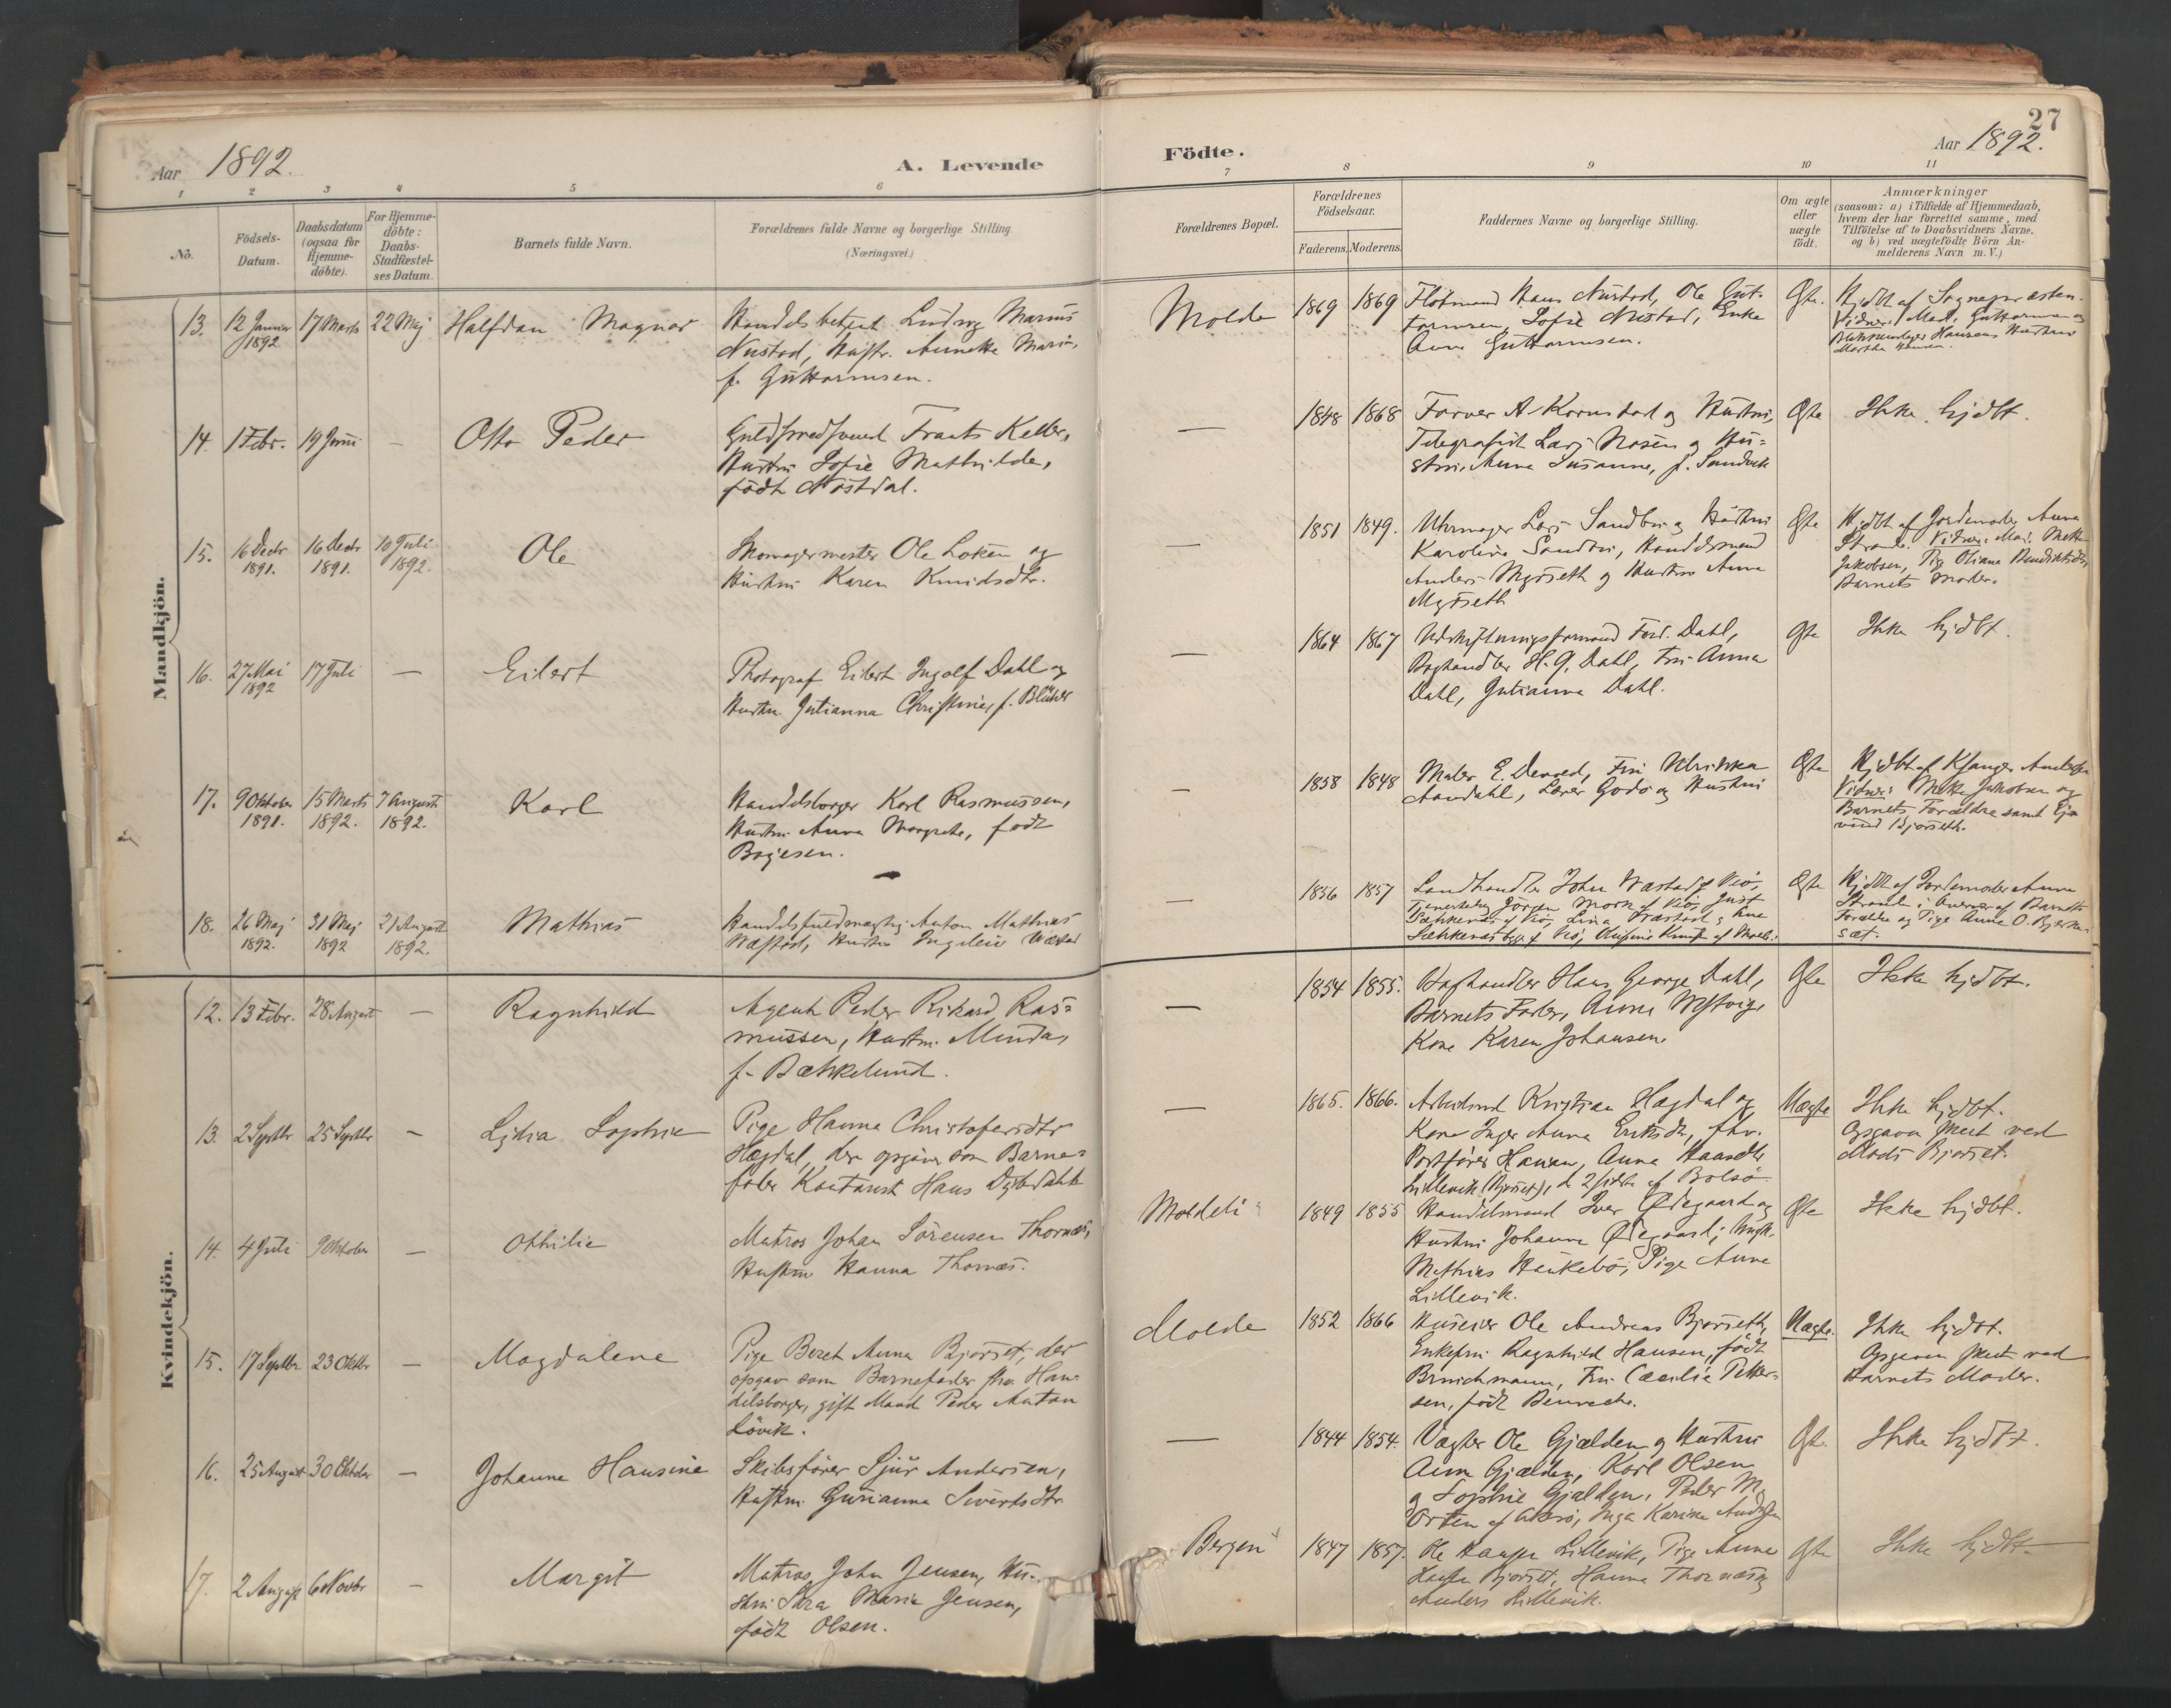 27
Aar 1892.
A. Levende
Födte.
Aar 1892.
1 2 3 4 5 6 7 8 9 10 11
No.
Födsels-
Datum.
Daabsdatum
(ogsaa for
Hjemme-
döbte).
For Hjemme-
döbte:
Daabs-
Stadfæstel-
ses Datum.
Barnets fulde Navn.
Forældrenes fulde Navne og borgerlige Stilling.
(Næringsvei.)
Forældrenes Bopæl.
Forældrenes
Födselsaar.
Faderens. Moderens.
Faddernes Navne og borgerlige Stilling.
Om ægte
eller
uægte
födt.
Anmærkninger
(saasom: a) i Tilfælde af Hjemmedaab,
hvem der har forrettet samme, med
Tilföielse af to Daabsvidners Navne.
og b) ved uægtefödte Börn An-
melderens Navn m.V.)
Mandkjön.
13. 12 Januar 1892 17 Marts 22 Maj Halfdan Magnar
Handelsbetjent Ludvig Marius
Nustad, Hustr. Annette Marie,
f. Guttormsen.
Molde 1869 1869
Hans Nustad, Ole Gut-
tormsen, Sofie Nustad, Enke
Anna Guttormsen.
Ægte.
Hjdbt af Sognepræsten.
Vidner: Mad. Guttormsen og
Hansens Hustru
Martha Hansen.
14. 1 Febr. 19 Juni — Otto Peder
Guldsmedsvend Frants Keller,
Hustru Sofie Mathilde,
födt Nöstdal.
— 1848 1868
Farver A. Kornstad og Hustru,
Telegrafist Lars Nosen og Hu-
stru Anna Susanne, f. Sandvik
Ægte
Ikke hjdbt.
15. 16 Decbr 1891. 16 Decbr 1891. 10 Juli 1892. Ole
Skomagermester Ole Loken og
Hustru Karen Knudsdtr.
— 1851 1849.
Uhrmager Lars Sandbu og Hustru
Karoline Sandbu, Handelsmand
Anders Myrseth og Hustru Anna
Myrseth
Ægte
Hjdbt af Jordemoder Anna
Strande. Vidner: Mad. Mette
Jakobsen, Pige Oliana Bendiktsdtr,
Barnets Moder.
16. 27 Mai 1892 17 Juli — Eilert
Photograf Eilert Ingolf Dahl og
Hustru Julianna Christine, f. Blücher
— 1864 1867
Udskiftningsformand Ferd. Dahl,
Boghandler H. G. Dahl, Fru Anna
Dahl, Julianna Dahl.
Ægte
Ikke hjdbt.
17. 9 Oktober 1891. 15 Marts 1892. 7 August 1892. Karl
Handelsborger Karl Rasmussen,
Hustru Anna Margrete, födt
Bojesen.
— 1858 1848
Maler E. Devold, Fru Ulrikka
Aandahl, Lærer Godø og Hustru
Ægte
Hjdbt af Ksanger Andersen
Vidner: Mette Jakobsen og
Barnets Forældre samt
Bjørseth.
18. 26 Maj 1892. 31 Maj 1892 21 August 1892. Mathias
Handelsfuldmægtig Anton Mathias
Wæstad, Hustru Ingeleiv Wæstad
— 1856 1857
Landhandler John Wæstad af Veø,
Jørgen Mork af Veø, Just
Sækkenæs af Veø, Lina Wæstad, Ane
Sækkenæs af Veø,
Ægte
Hjdbt af Jordemoder Anna
Strande i Overvær af Barnets
Forældre og Pige Anna O. Bjørn-
sæt.
Kvindekjön.
12. 13 Febr. 28 August — Ragnhild
Agent Peder Rikard Ras-
mussen, Hustru Minda,
f. Bækkelund.
— 1854 1855.
Boghandler Hans George Dahl,
Barnets Fader, Anna
Kone Karen Johansen.
Ægte
Ikke hjdbt.
13. 2 Septbr 25 Septbr — Lydia Sophie
Pige Hanna Christofersdtr
Hagdal, der opgiver som Barne-
fader Kontorist Hans Dybdahl
— 1865. 1866.
Arbeidsmd Kristian Hagdal og
Kone Inger Anna Eriksdtr, fhv.
Postfører Hansen, Anna
Lillevik (Bjørset), de 2 sidste af Bolsø
Uægte
Ikke hjdbt.
Opgaven skeet ved
Mads Bjørset.
14. 4 Juli 9 Oktober — Othilie
Matros Johan Sörensen Thornæs,
Hustru Hanna Thornæs.
Moldeli 1849 1855
Handelsmand Iver Ødegaard og
Hustru Johanna Ødegaard,
Mathias Haukebø, Pige Anna
Lillevik.
Ægte
Ikke hjdbt.
15. 17 Septbr 23 Oktbr — Magdalene
Pige Beret Anna Bjørset, der
opgav som Barnefader fhv. Han-
delsborger, gift Mand Peder Anton
Lövik.
Molde 1852 1866
Huseier Ole Andreas Bjørseth,
Enkefru Ragnhild Hansen, födt
Brinchmann, Fru Cæcilie Petter-
sen, födt
Uægte.
Ikke hjdbt.
Opgaven skeet ved
Barnets Moder.
16. 25 August 30 Oktober — Johanne Hansine
Skibsförer Sjur Andersen,
Hustru Gurianna Sivertsdtr
— 1844 1854.
Vægter Ole Gjælden og Hustru
Anna Gjælden, Karl Olsen
og Sophie Gjælden, Peder M.
Orten af Akerø, Inga Karine Andersen
Ægte.
Ikke hjdbt.
17. 2 August 6 Novbr — Margit
Matros John Jensen, Hu-
stru Sara Maria Jensen,
födt Olsen.
Bergen 1847 1857.
Ole Lillevik, Pige Anna
Bjørset, Hanna Thornæs og
Anders Lillevik.
Ægte
Ikke hjdbt.